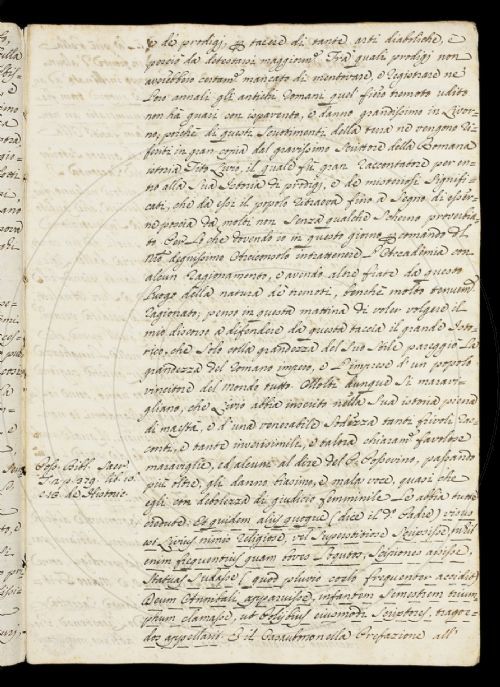 e de' prodigj, per tacere di tante arti diaboliche, e
perciò da detestarsi maggiorm.e Fra' quali prodigj non
avrebbero certam.e mancato di mentovare, e registrare ne'
loro annali gli antichi Romani quel fiero tremoto udito
non ha guari con ispavento, e danno grandissimo in Livor-
no; poiché di questi scuotimenti della terra ne vengono ri-
feriti in gran copia dal gravissimo Scrittore della Romana
istoria Tito Livio, il quale fù gran raccontatore per en-
tro alla sua istoria di prodigj, e de' misteriosi signifi-
cati, che da essi il popolo ritraeva fino a segno di esser-
ne poscia da molti non senza qualche scherno proverbia-
to. Per lo che dovendo io in questo giorno per comando del
nro degnissimo Arciconsolo intrattenere l'Accademia con
alcun ragionamento, e avendo altre fiate da questo
luogo della natura de' tremoti, benché molto tenuem.e
ragionato, penso in questa mattina di voler volgere il
mio discorso a difendere da questa taccia il grande Isto-
rico, che solo colla grandezza del suo stile pareggiò la
grandezza del Romano impero, e l'imprese d'un popolo
vincitore del mondo tutto. Molti dunque si maravi-
gliano, che Livio abbia inserito nella sua istoria piena
di maestà, e d'una venerabile sodezza tanti frivoli rac-
conti, e tante inverisimili, e talora chiaram.e favolose
maraviglie, ed alcuni al dire del P. Possevino, passando
più oltre, gli danno biasimo, e mala voce, quasi che
egli con debolezza di giudicio femminile le abbia tutte
credute: Et quidem aliis quoque (dice il d.o Padre)
est Livius nimio religiosè, vel superstitiosè
enim frequentius quam boves locutos, scisiones
Statuas sudasse (quod pluvio coelo frequenter accidit)
Deum Annibali apparuisse, infantem semestrem trium-
phum clamasse, ut Polybius eiusmodi Scriptores tragoe-
dos appellarit. E il Casaubono nella Prefazione all'
Poss. Bibl. Saec.
c 18. de Histori.